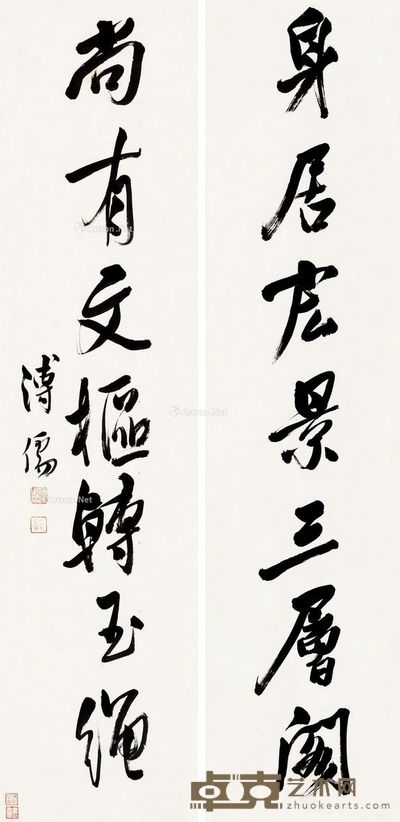 身居宏景三層閣
尚有文樞轉玉繩
溥儒
Artron.Net
Artron.Net
Artron.Net
Artron.Net
卓克艺术网
zhuokearts.com